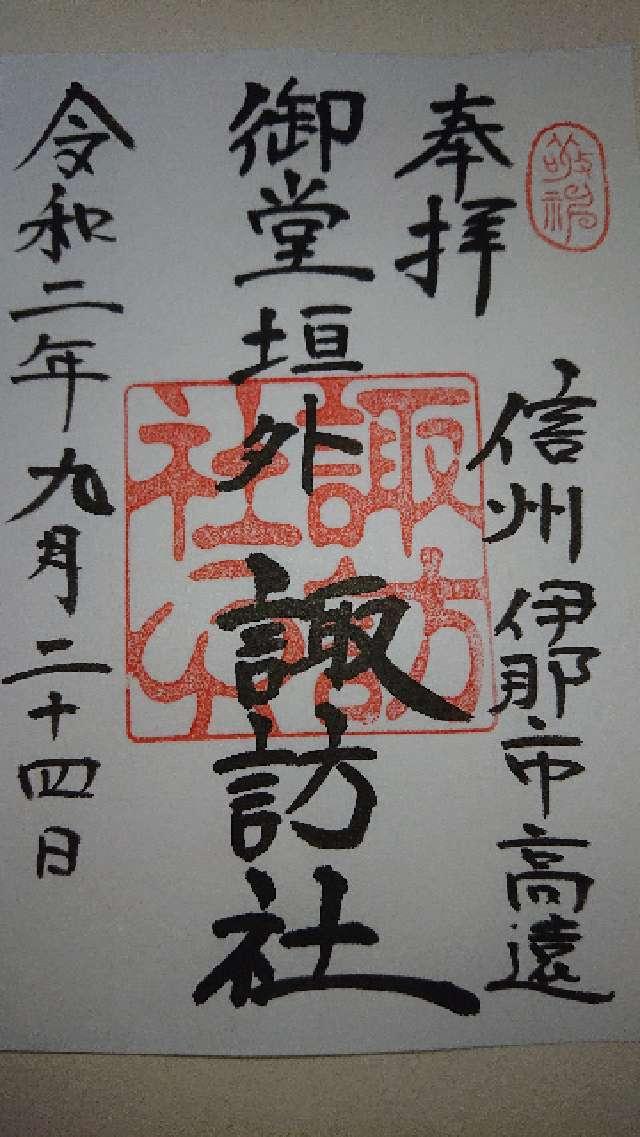 敬神
奉拝
信州伊那市高遠
御堂垣外諏訪社
諏訪
社之印
令和二年九月二十四日